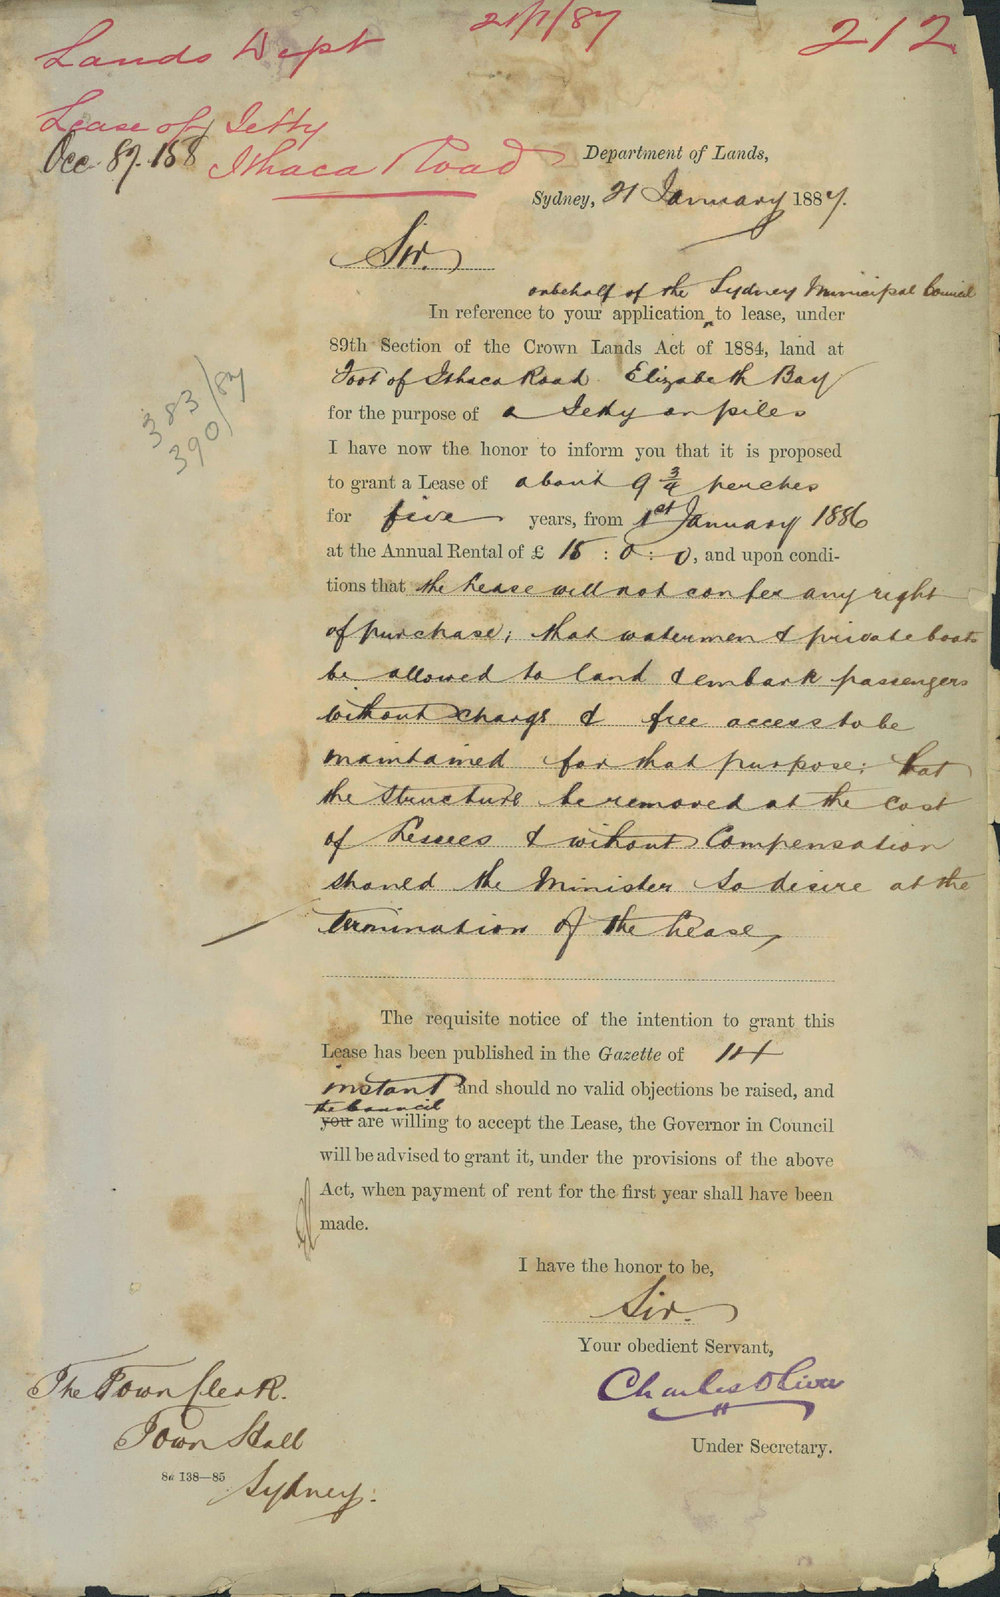 21/1/87
212
Lands Dept
Lease of Jetty
Occ 87.158 Ithaca Road
Department of Lands,
Sydney, 21 January 1887.
Sir.
onbehalf of the Sydney Municipal Council
In reference to your application ‸ to lease, under
89th Section of the Crown Lands Act of 1884, land at
Foot of Ithaca Road Elizabeth Bay
for the purpose of a Jetty on piles
I have now the honor to inform you that it is proposed
to grant a Lease of about 9 3/4 perches
for five years, from 1st January 1886
at the Annual Rental of £ 15 : 0 : 0, and upon condi-
tions that the Lease will not confer any right
of purchase; that watermen & private boats
be allowed to land & embark passengers
without charge & free access to be
maintained for that purpose; that
the structure be removed at the cost
of Lessees & without Compensation
should the Minister so desire at the
termination of the Lease,
383/87
390
The requisite notice of the intention to grant this
Lease has been published in the Gazette of 14
instant and should no valid objections be raised, and
the Council
you are willing to accept the Lease, the Governor in Council
will be advised to grant it, under the provisions of the above
Act, when payment of rent for the first year shall have been
made.
I have the honor to be,
Sir.
Your obedient Servant,
Charles Oliver
Under Secretary.
The Town Clerk.
Town Hall
Sydney.
8a 138—85